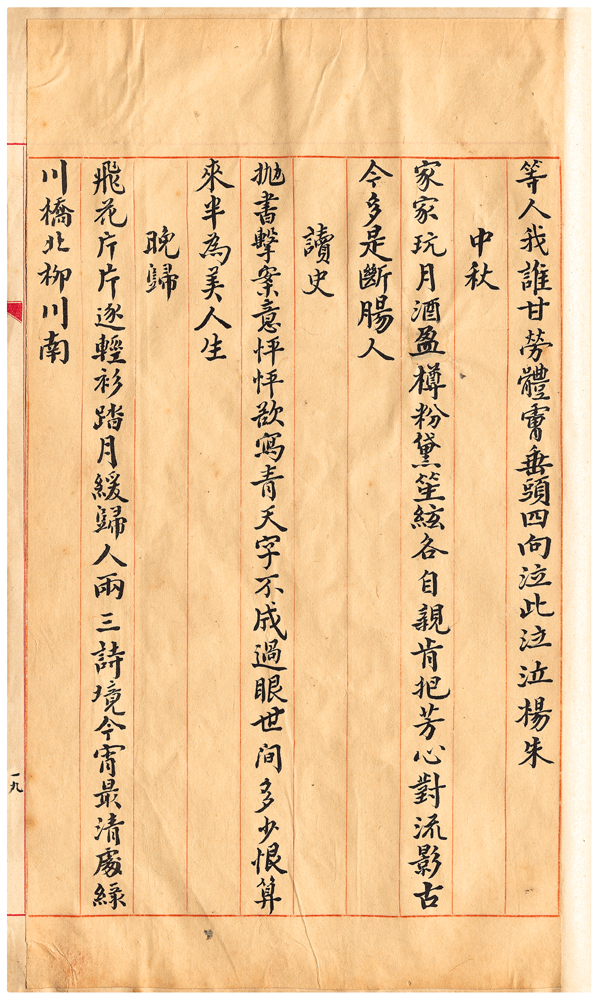 等人我誰甘勞體膏垂頭四向泣此泣泣楊朱
中秋
家家玩月酒盈樽粉黛笙絃各自親肯把芳心對流影古
今多是斷腸人
讀史
拋書擊案意怦怦欲寫青天字不成過眼世间多少恨算
來半為美人生
晚歸
飛花片片逐輕衫踏月緩歸人兩三詩境今宵最清處綠
川橋北柳川南
一九